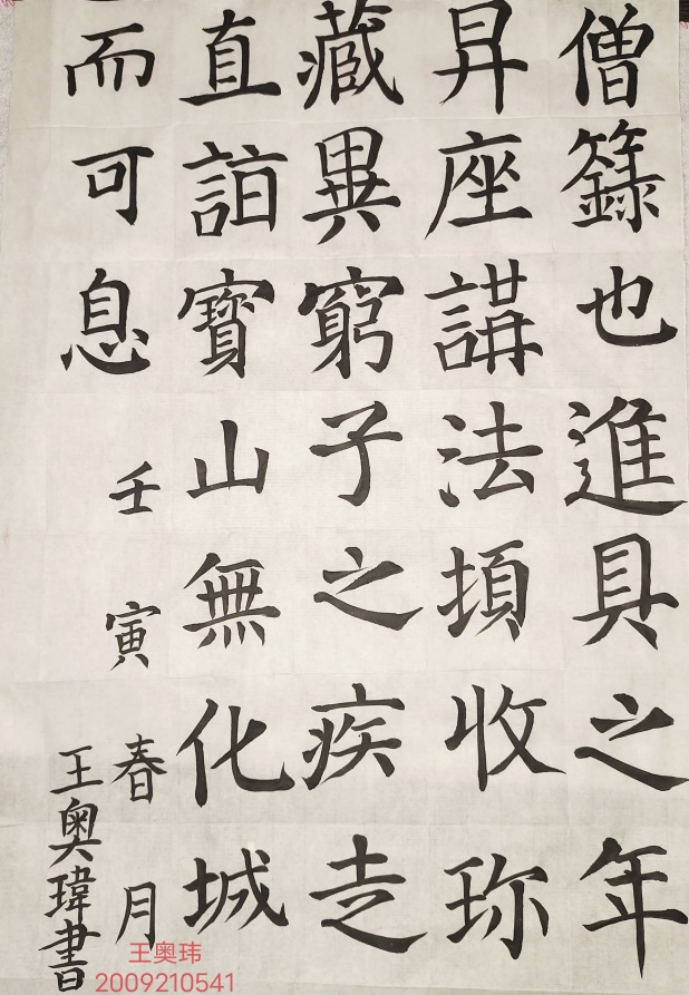 僧籙也進具之年
昇座講法頓收珎
藏異窮子之疾走
直詣寶山無化城
而可息
壬寅春月
王奧瑋書
王奥玮
2009210541